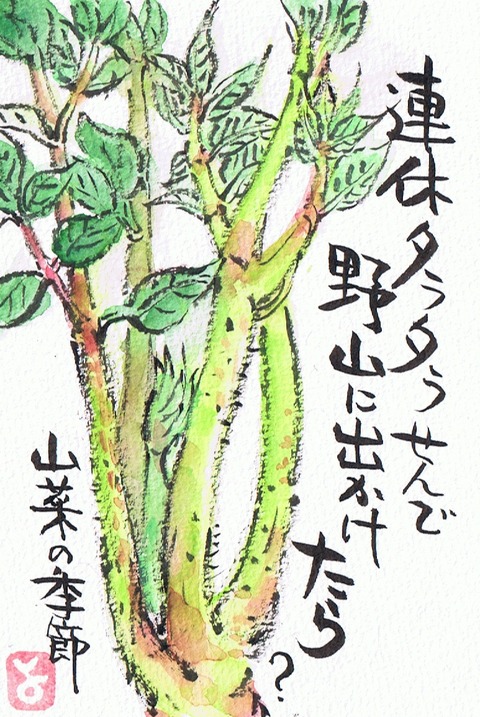 連休タラタラせんで
野山に出かけ
たら?
山菜の季節
と